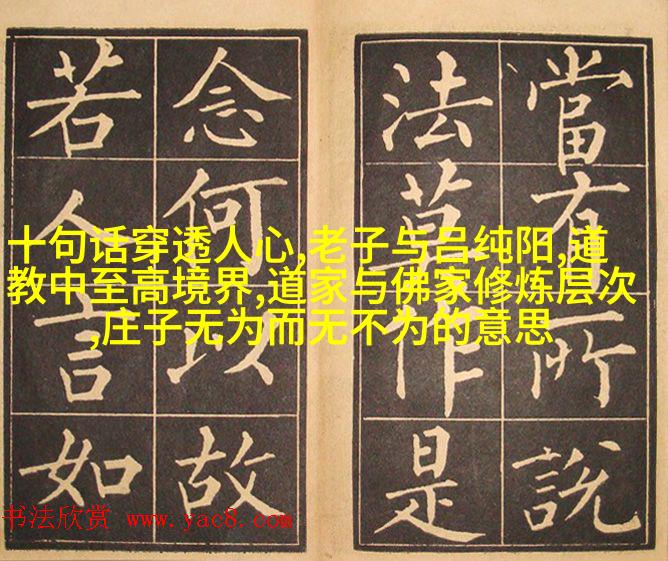 當有所說
法莫作是
念何以故
若人言如
十句话穿透人心,老子与吕纯阳,道
教中至高境界,道家与佛家修炼层次
,庄子无为而无不为的意思
书法欣赏 www.yac8.com